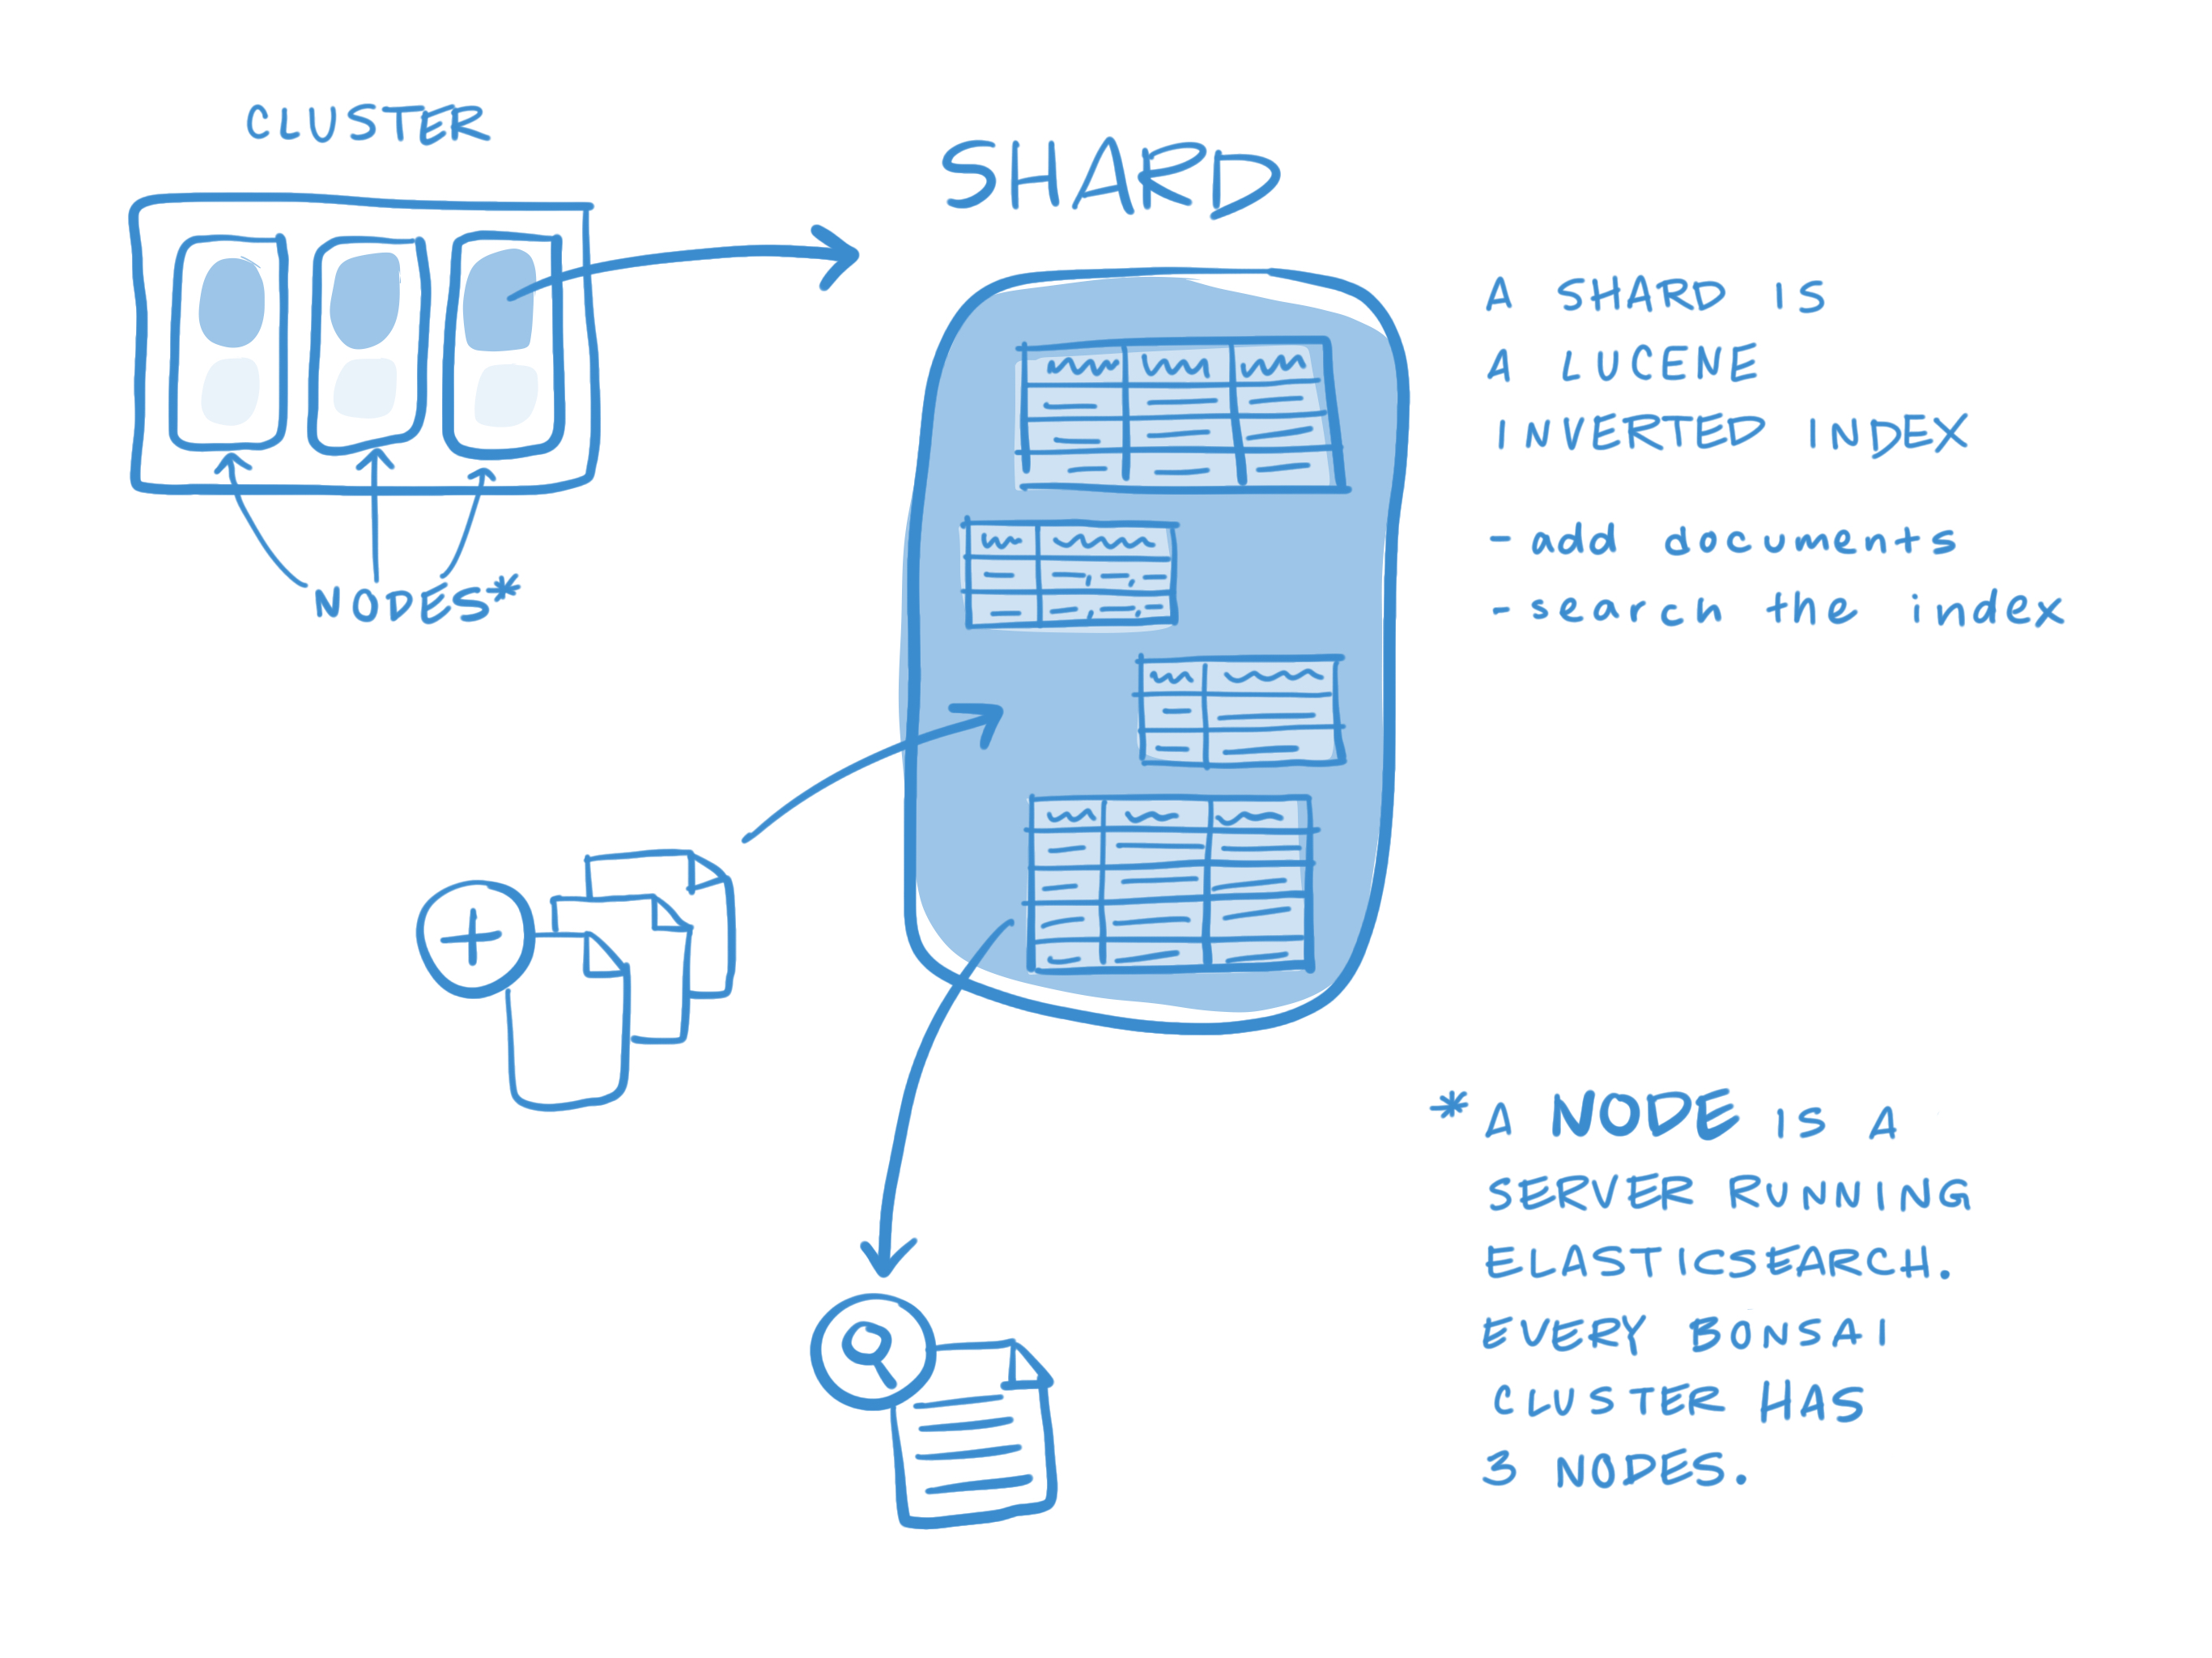 CLUSTER
SHARD
NODES*
A SHARD IS
A LUCENE
INVERTED INDEX
- add documents
- search the index
* A NODE IS A
SERVER RUNNING
ELASTICSEARCH.
EVERY BONSAI
CLUSTER HAS
3 NODES.